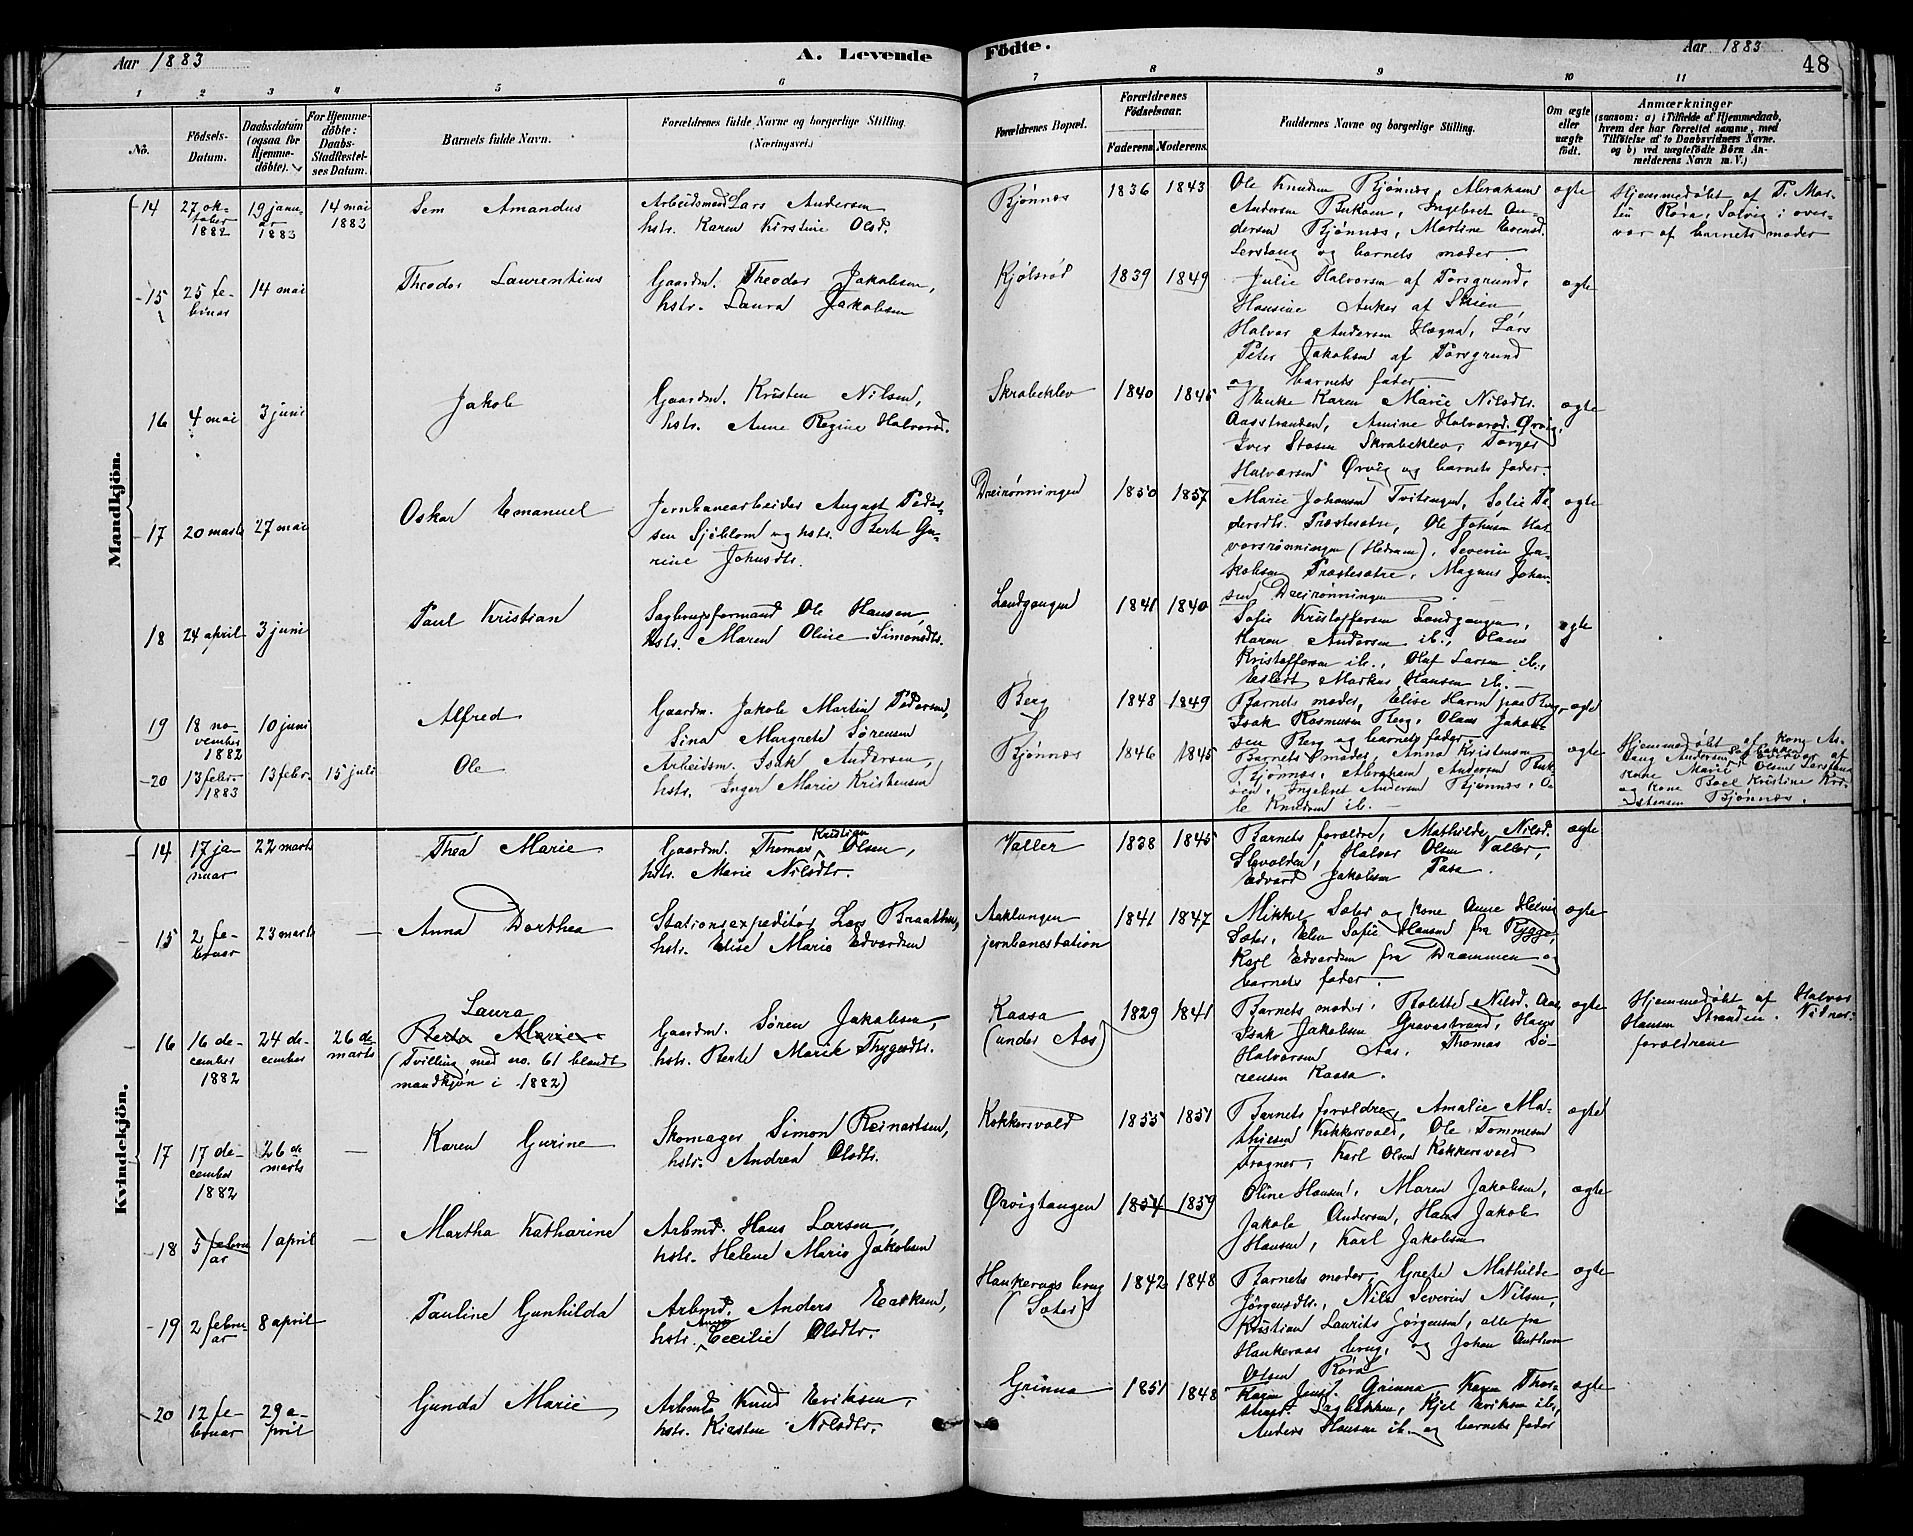 Aar 1883
A. Levende
Födte.
Aar 1883
48
1 2 3 4 5 6 7 8 9 10 11
No.
Födsels-
Datum.
Daabsdatum
(ogsaa for
Hjemme-
döbte).
For Hjemme-
döbte:
Daabs-
Stadfæstel-
ses Datum.
Barnets fulde Navn.
Forældrenes fulde Navne og borgerlige Stilling.
(Næringsvei.)
Forældrenes Bopæl.
Forældrenes
Födselsaar.
Faderens. Moderens.
Faddernes Navne og borgerlige Stilling.
Om ægte
eller
uægte
födt.
Anmærkninger
(saasom: a) i Tilfælde af Hjemmedaab,
hvem der har forrettet samme, med
Tilföielse af to Daabsvidners Navne,
og b) ved uægtefödte Börn An-
melderens Navn m. V.)
Mandkjön.
14
27 ok-
tober
1882
19 janu-
ar
1883
14 mai
1883
Sem Amandus
Arbeidsmand Lars Andersen
hstr. Karen Kirstine Olsd.
Bjønnes
1836 1843
Ole Knudsen Bjønnes, Abraham
Andersen, Ingebret An-
dersen Bjønnes, Martine Evensd.
Lerstang og barnets moder.
ægte
Hjemmedøbt af P. Mar-
tin Røra, Solvig i over-
vær af barnets moder
15
25 fe-
bruar
14 mai
Theodor Laurentius
Gaardm. Theodor Jakobsen,
hstr. Laura Jakobsen
Kjølsrød
1839 1849
Julie Halvorsen af Porsgrund,
Hansine Anker af Skien
Halvor Andersen Hægna, Lars
Peter Jakobsen af Porsgrund
og barnets fader
ægte
16
4 mai
3 juni
Jakob
Gaardm. Kristen Nilsen,
hstr. Anne Regine Halvorsd.
Skrabeklev
1840 1845
Karen Marie Nilsdtr.
Aasstranden, Amine Halvorsd. Ørvig,
Iver Stosen Skrabeklev, Torger
Halvorsen Ørvig og barnets fader.
ægte
17
20 marts
27 mai
Oskar Emanuel
Jernbanearbeider August Peder-
sen Sjöblom og hstr. Berte Gu-
rine Johnsdtr.
Dreirønningen
1850 1857
Marie Johansen Tvitangen, Sofie Pe-
dersdtr. Præstesætre, Ole Johnsen Hal-
vorsrønningen (Hedrum), Severin Ja-
kobsen Præstesætre, Magnus Johan-
sen Dreirønningen
ægte
18
24 april
3 juni
Paul Kristian
Sagbrugsformand Ole Hansen,
hstr. Maren Oline Simonsdtr.
Landgangen
1841 1840
Sofie Kristoffersen Landgangen,
Karen Andersen ib., Olaus
Kristoffersen ib., Oluf Larsen ib.,
Eilert Markus Hansen ib.
ægte
19
18 no-
vember
1882
10 juni
Alfred
Gaardm. Jakob Martin Pedersen,
Sina Margrete Sørensen
Berg
1848 1849
Barnets moder, Elise Harm paa Berg,
Isak Rasmussen Berg, Olaus Jakob-
sen Berg og barnets fader
ægte
20
13 febr.
1883
13 febr.
15 juli
Ole
Arbeidsm. Isak Andersen,
hstr. Inger Marie Kristensen
Bjønnes
1846 1845
Barnets moder, Anna Kristensen
Bjønnes, Abraham Andersen,
Ingebret Andersen Bjønnes, O-
le Knudsen ib.
ægte
Hjemmedøbt af kone
Andersen
kone Marie Olsen Lerstang
og kone Boel Kristine Kri-
stensen Bjønnes.
Kvindekjön.
14
17 ja-
nuar
22 marts
Thea Marie
Kristian
Gaardm. Thomas Olsen,
hstr. Marie Nilsdtr.
Valler
1838 1845
Barnets forældre, Mathilde Nilsd.
Halvor Olsen Valler,
Edvard Jakobsen Pasa.
ægte
15
2 fe-
bruar
23 marts
Anna Dorthea
Stationsexpeditør Lars Braathen,
hstr. Elise Marie Edvardsen
Aaklungen
jernbanestation
1841 1847
Mikkel Sæter og kone Anne Helvig
Sæter, Elen Sofie Hansen fra Rygge,
Karl Edvardsen fra Drammen og
barnets fader.
ægte
16
16 de-
cember
1882
24 de-
cember
26 de
marts
Laura
Berta Marie
(Tvilling med no. 61 blandt
mandkjøn i 1882)
Gaardm. Søren Jakobsen,
hstr. Berte Marie Thygesdtr.
Kaasa
(under Aas)
1829 1841
Barnets moder, Bolette Nilsd. Aas
Isak Jakobsen Gravastrand, Hans
Halvorsen Aas, Thomas Sø-
rensen Kaasa.
ægte
Hjemmedøbt af Halvor
Hansen Stranden. Vidner:
forældrene
17
17 de-
cember
1882
26 de
marts
Karen Gurine
Skomager Simon Reinertsen,
hstr. Andrea Olsdtr.
Kokkersvold
1855 1851
Barnets forældre, Amalie Ma-
thisen Kokkersvold, Ole Tommesen
Frogner, Karl Olsen Kokkersvold
ægte
18
5 febru-
ar
1 april
Martha Katharine
Arbmd. Hans Larsen,
hstr. Helene Marie Jakobsen
Ørvigtangen
1854 1859
Oline Hansen, Maren Jakobsen,
Jakob Andersen, Hans Jakob
Hansen, Karl Jakobsen
ægte
19
2 febru-
ar
8 april
Pauline Gunhilda
Arbmd. Anders Isaksen,
hstr. Cecilie Olsdtr.
Hankeraas brug
(Sæter)
1842 1848
Barnets moder, Grete Mathilde
Jørgensdtr., Nils Severin Nilsen,
Kristian Laurits Jørgensen, alle fra
Hankeraas brug, og Johan Anthon
Olsen Røra
ægte
20
12 fe-
bruar
29 a-
pril
Gunda Marie
Arbmd. Knud Eriksen,
hstr. Kirsten Nilsdtr.
Grinna
1851 1848
Karen Jensd. Grinna, Karen Thor-
stensd. Sagbakken, Kjel Eriksen ib.,
Anders Hansen ib. og barnets fader
ægte